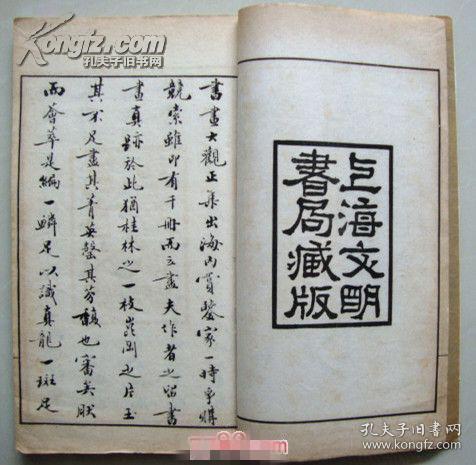 Kongfz.com
孔夫子旧书网
上海文明
書局藏版
書畫大觀正集出海内賞鑒家一時爭購
競索雖印有千冊而立盡夫作者之留書
畫真跡於此猶桂林之一枝崑岡之片玉
其不足盡其菁英罄其芬馥也審矣然
而薈萃是編一鱗足以識真龍一斑足
孔夫子旧书网